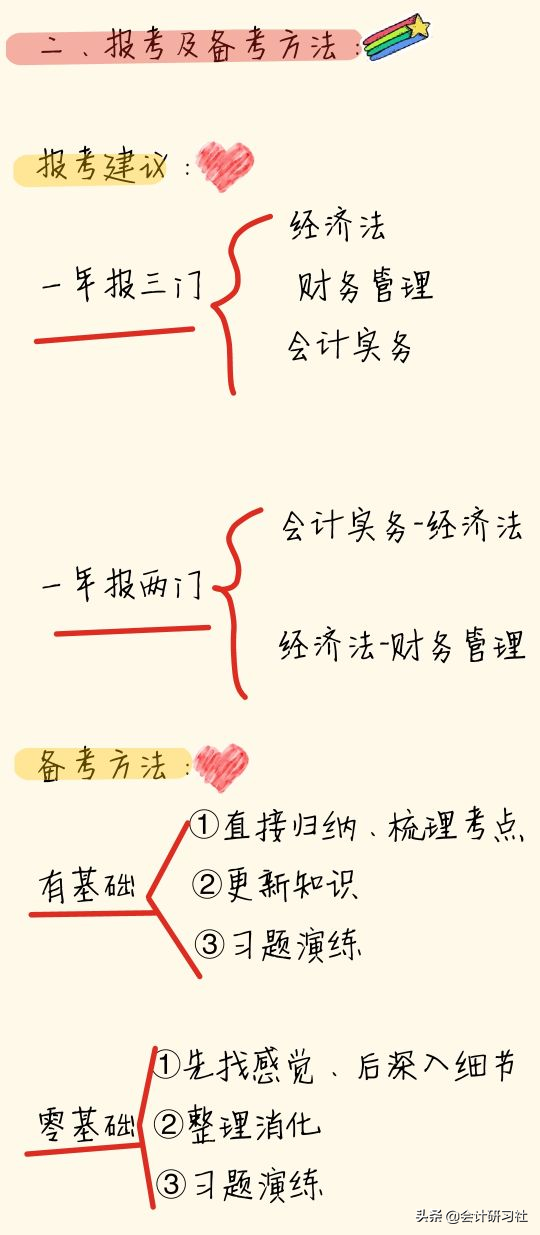 二、报考及备考方法:
报考建议:
一年报三门
经济法
财务管理
会计实务
一年报两门
会计实务-经济法
经济法-财务管理
备考方法:
有基础
①直接归纳、梳理考点
②更新知识
③习题演练
零基础
①先找感觉、后深入细节
②整理消化
③习题演练
头条 @会计研习社